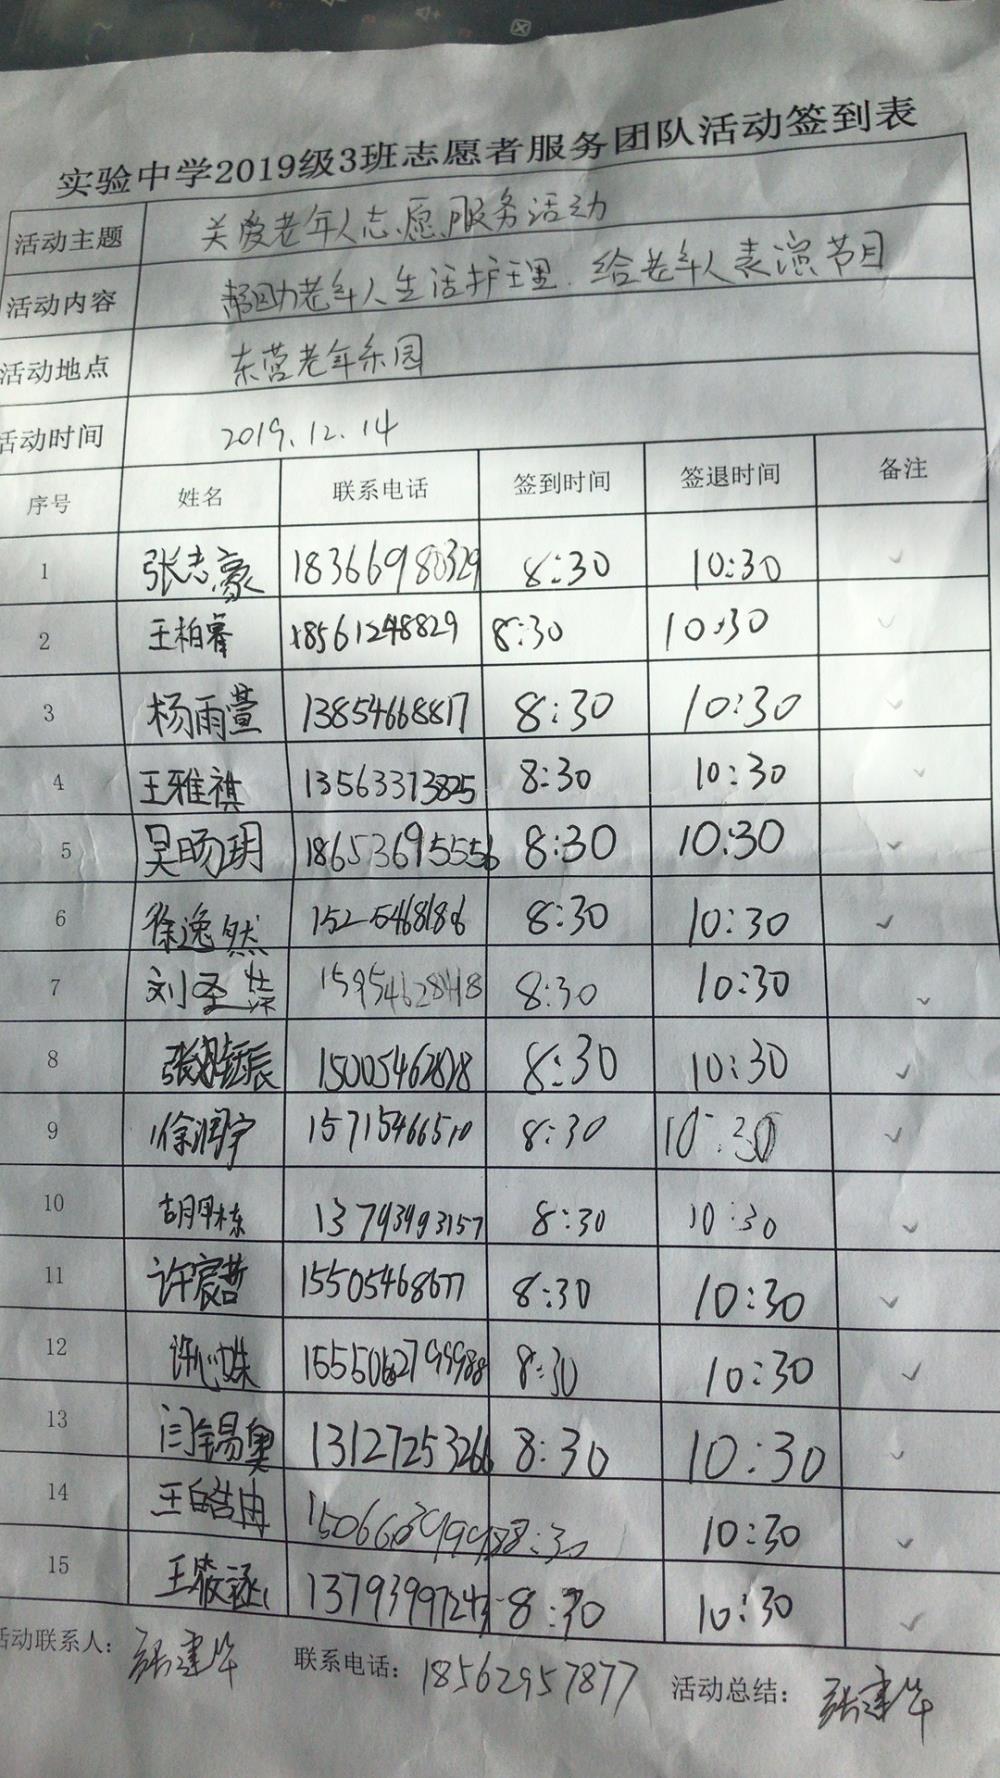 实验中学2019级3班志愿者服务团队活动签到表
活动主题 关爱老年人志愿服务活动
活动内容 帮助老年人生活护理、给老年人表演节目
活动地点 东营老年乐园
活动时间 2019.12.14
序号 姓名 联系电话 签到时间 签退时间 备注
1 张志豪 18366980329 8:30 10:30 ✓
2 王柏睿 18561248829 8:30 10:30 ✓
3 杨雨萱 13854668817 8:30 10:30 ✓
4 王雅祺 13563373825 8:30 10:30 ✓
5 吴旸玥 18653695556 8:30 10:30 ✓
6 徐逸然 1525468186 8:30 10:30 ✓
7 刘圣 15954628418 8:30 10:30 ✓
8 15005462828 8:30 10:30 ✓
9 徐润宇 15715466510 8:30 10:30 ✓
10 13793493157 8:30 10:30 ✓
11 许宸哲 15505468677 8:30 10:30 ✓
12 许心姝 8:30 10:30 ✓
13 闫锡奥 13127253266 8:30 10:30 ✓
14 王皓冉 8:30 10:30 ✓
15 王筱涵 8:30 10:30 ✓
活动联系人： 张建华 联系电话： 18562957877 活动总结： 张建华